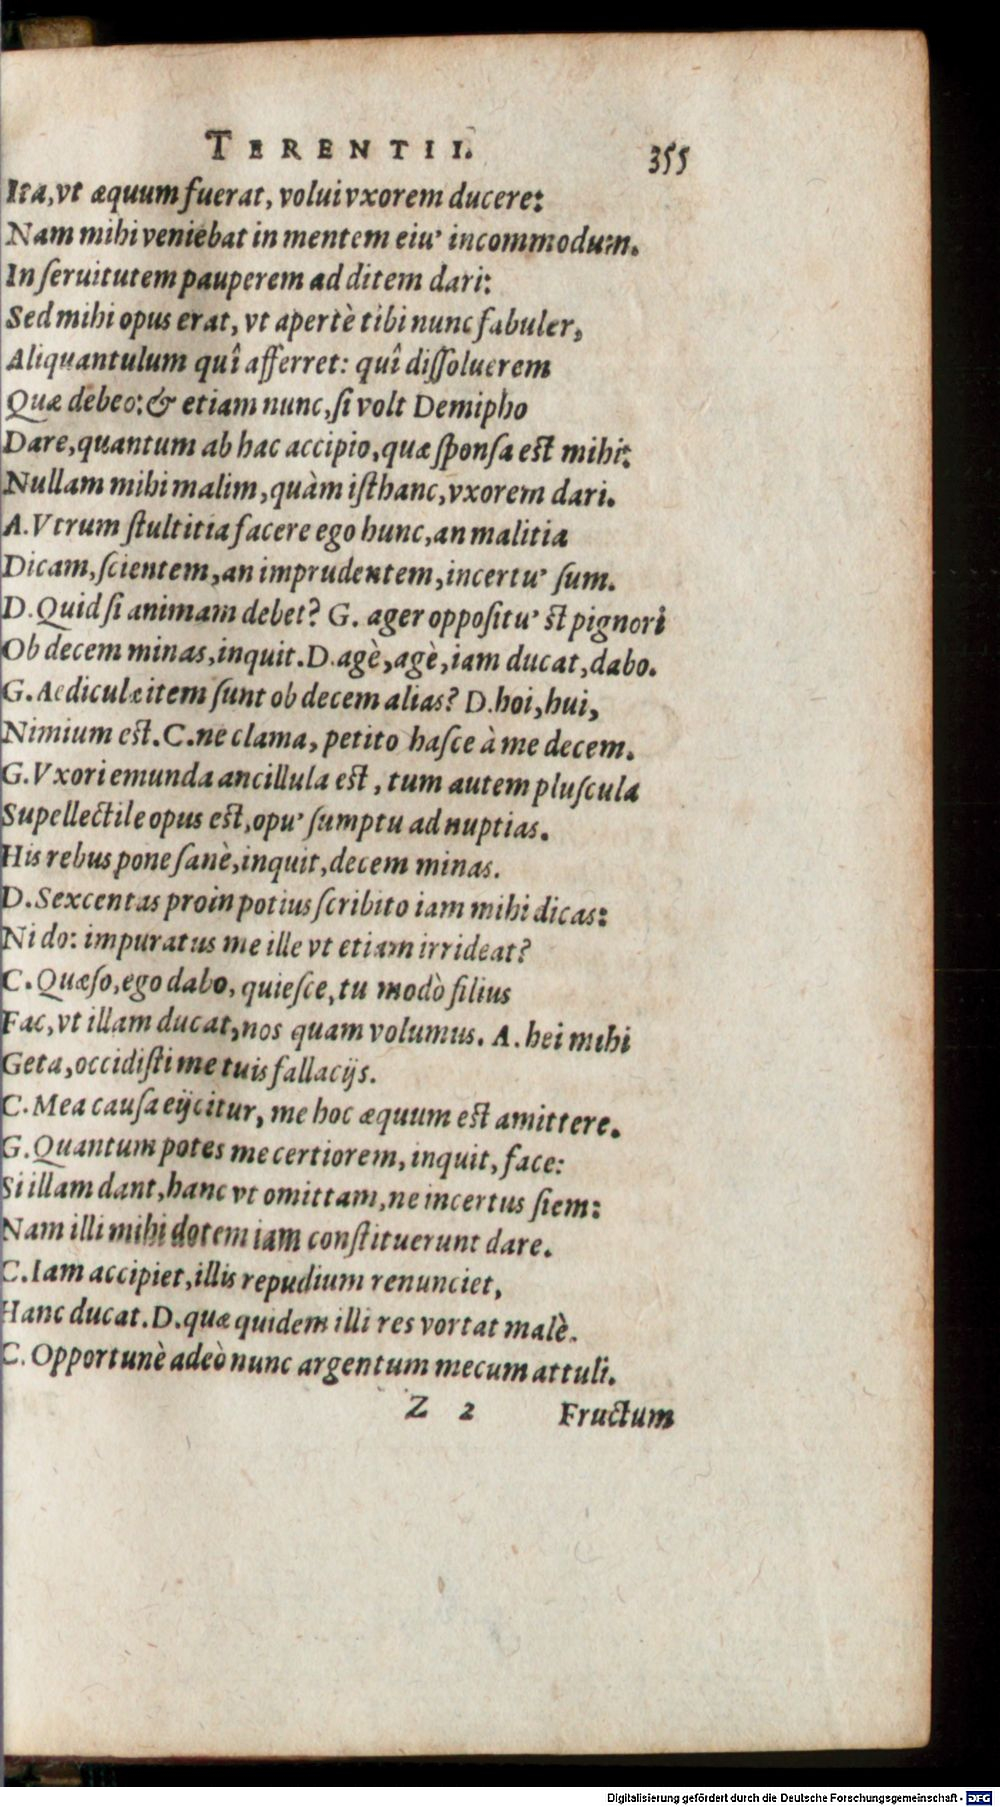 TERENTII. 355
Ita, vt æquum fuerat, volui vxorem ducere:
Nam mihi veniebat in mentem eiu' incommodum.
In ſeruitutem pauperem ad ditem dari:
Sed mihi opus erat, vt apertè tibi nunc fabuler,
Aliquantulum quî afferret: quî diſſoluerem
Quæ debeo: & etiam nunc, ſi volt Demipho
Dare, quantum ab hac accipio, quæ ſponſa eſt mihi:
Nullam mihi malim, quàm iſthanc, vxorem dari.
A. Vtrum ſtultitia facere ego hunc, an malitia
Dicam, ſcientem, an imprudentem, incertu' ſum.
D. Quid ſi animam debet? G. ager oppoſitu' ſt pignori
Ob decem minas, inquit. D. agè, agè, iam ducat, dabo.
G. Aediculæ item ſunt ob decem alias? D. hoi, hui,
Nimium eſt. C. ne clama, petito haſce à me decem.
G. Vxori emunda ancillula eſt, tum autem pluſcula
Supellectile opus eſt, opu' ſumptu ad nuptias.
His rebus pone ſanè, inquit, decem minas.
D. Sexcentas proin potius ſcribito iam mihi dicas:
Ni do: impuratus me ille vt etiam irrideat?
C. Quæſo, ego dabo, quieſce, tu modò filius
Fac, vt illam ducat, nos quam volumus. A. hei mihi
Geta, occidiſti me tuis fallacijs.
C. Mea cauſa eijcitur, me hoc æquum eſt amittere.
G. Quantum potes me certiorem, inquit, face:
Si illam dant, hanc vt omittam, ne incertus ſiem:
Nam illi mihi dotem iam conſtituerunt dare.
C. Iam accipiet, illis repudium renunciet,
Hanc ducat. D. quæ quidem illi res vortat malè.
C. Opportunè adeò nunc argentum mecum attuli.
Z 2 Fructum
Digitalisierung gefördert durch die Deutsche Forschungsgemeinschaft - DFG